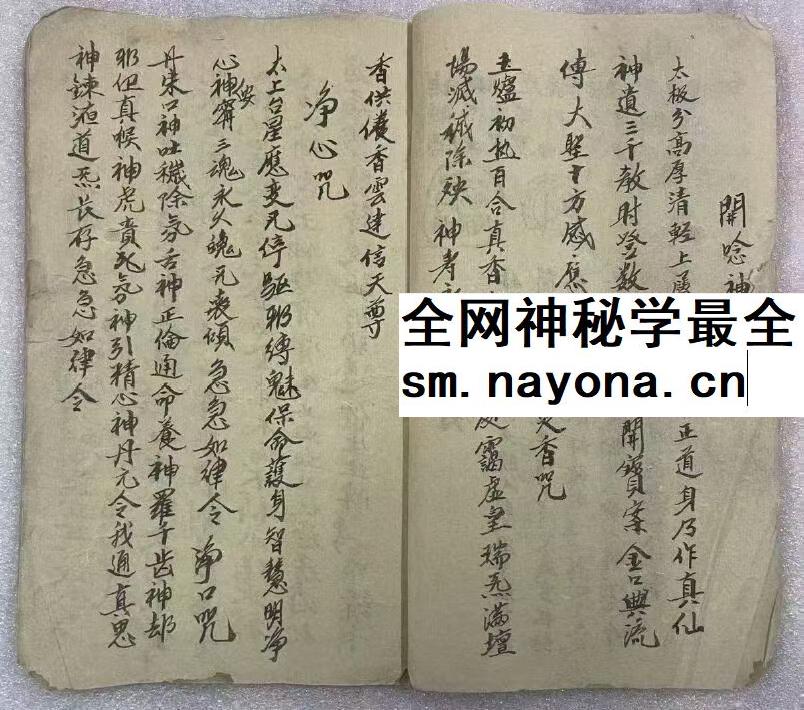 開唸神
太极分高厚清輕上属正道身乃作真仙
神遺三千教时登数開寶案金口興流
傳大聖十方感應香咒
玉爐初热百合真香靄虚皇瑞炁滿壇
場滅穢除殃神考
香供養香雲達信天尊
净心咒
太上台星應变无停驅邪縛魅保命護身智慧明净
心神安寧三魂永久魄无丧傾急急如律令净口咒
丹朱口神吐穢除氛舌神正倫通命養神羅千齿神却
邪但真喉神虎賁炁氛神引精心神丹元令我通真思
神鍊液道炁长存急急如律令
全网神秘学最全
sm.nayona.cn